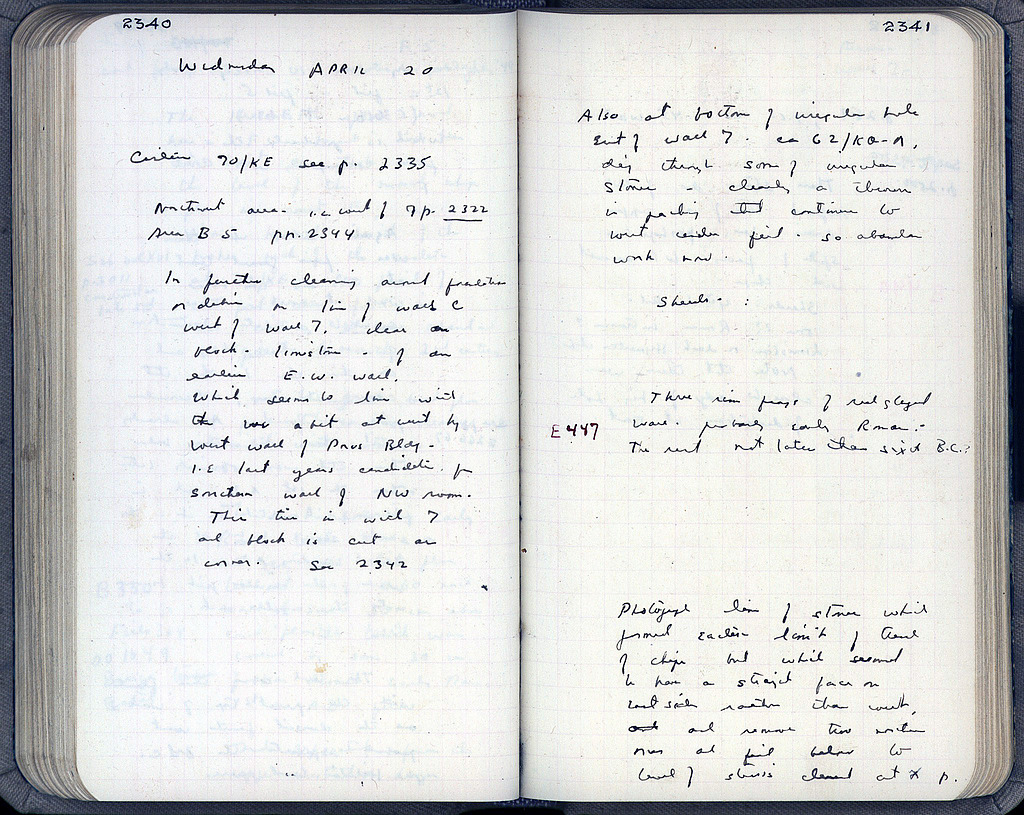 2340
Wednesday APRIL 20
Earlier 70/KE see p. 2335
Northwest area - i.e. west of 7 p. 2322
Area B 5 pp. 2344
In further cleaning around foundation
or debris on line of wall C
west of wall 7, clear an
block - limestone of an
earlier E.W. wall.
Which seems to line with
the a bit at west by
west wall of Bldg -
i.e. last years candidate for
southern wall of NW room.
This ties in with 7
and block is cut on
corner. See 2342
2341
Also at bottom of irregular hole
East of wall 7. ca 62/KQ-A,
dig through some of irregular
stones clearly a thrown
in packing continues to
west under fill - so abandon
work now.
Sherds - :
Three rim frags of red glazed
E447 ware. probably early Roman -
The rest not later than sixth B.C.?
Photograph line of stones which
formed eastern limit of
of chips but which seemed
to have a straight face on
east side rather than west,
and remove two
ones and fill below to
level of stereo cleaned at * p.